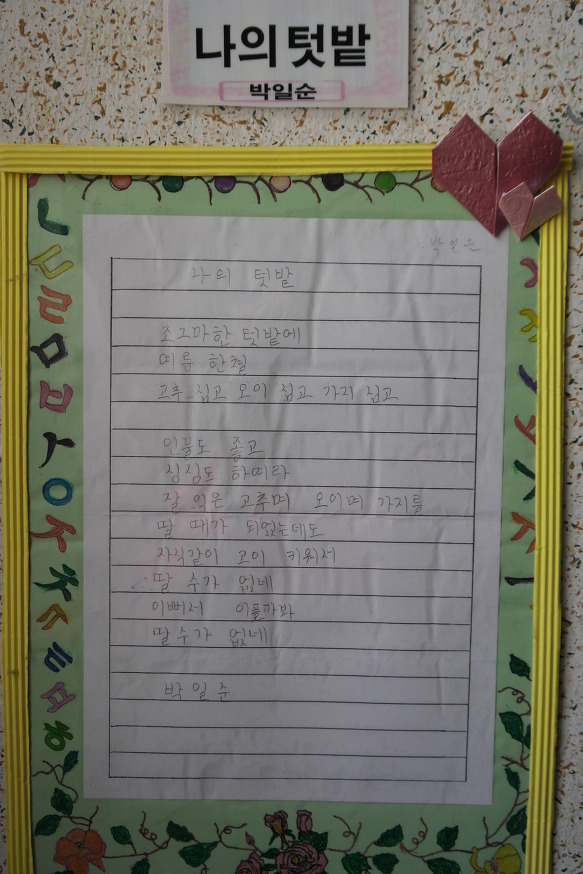 나의 텃밭
박일순
박일순
나의 텃밭
조그마한 텃밭에
여름 한철
고추 심고 오이 심고 가지 심고
인물도 좋고
싱싱도 하여라
잘 익은 고추며 오이며 가지를
딸 때가 되었는데도
자식같이 고이 키워서
딸 수가 없네
이뻐서 아플까봐
딸수가 없네
박일순